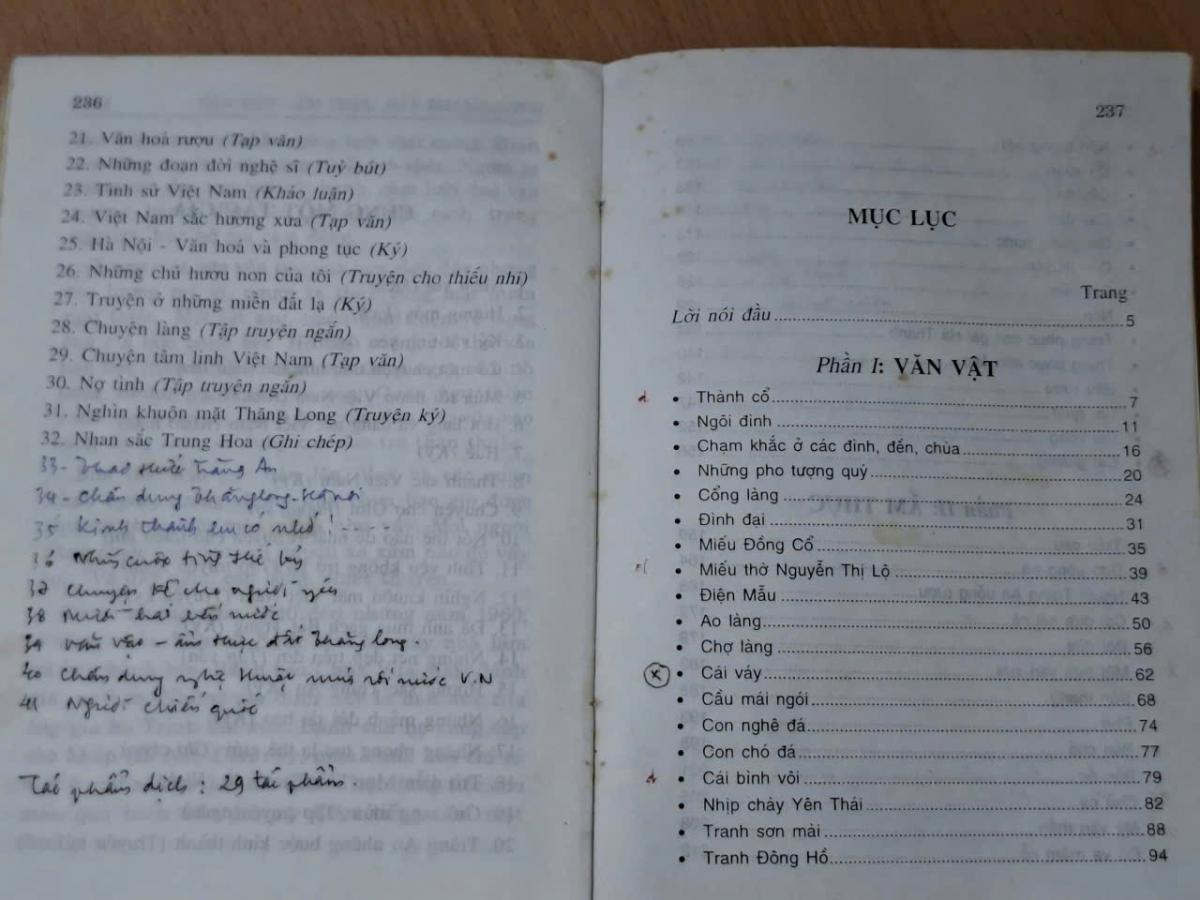 236
21. Văn hoá rượu (Tạp văn)
22. Những đoạn đời nghệ sĩ (Tuỳ bút)
23. Tình sử Việt Nam (Khảo luận)
24. Việt Nam sắc hương xưa (Tạp văn)
25. Hà Nội - Văn hoá và phong tục (Ký)
26. Những chú hươu non của tôi (Truyện cho thiếu nhi)
27. Truyện ở những miền đất lạ (Ký)
28. Chuyện làng (Tập truyện ngắn)
29. Chuyện tâm linh Việt Nam (Tạp văn)
30. Nợ tình (Tập truyện ngắn)
31. Nghìn khuôn mặt Thăng Long (Truyện ký)
32. Nhan sắc Trung Hoa (Ghi chép)
33- Thao thức Tràng An
34- Chân dung Thăng Long-Hà Nội
35 Kinh thành em có nhớ! ----
36 Những cuộc tình thế kỷ
37 Chuyện kể cho người yêu
38 Mười hai bến nước
39 Văn vật - ẩm thực đất Thăng Long.
40 Chân dung nghệ thuật múa rối nước V.N
41 Người chiến quốc
Tác phẩm dịch : 29 tác phẩm
237
MỤC LỤC
Trang
Lời nói đầu 5
Phần I: VĂN VẬT
• Thành cổ 7
• Ngôi đình 11
• Chạm khắc ở các đình, đền, chùa 16
• Những pho tượng quý 20
• Cổng làng 24
• Đình đại 31
• Miếu Đồng Cổ 35
• Miếu thờ Nguyễn Thị Lộ 39
• Điện Mẫu 43
• Ao làng 50
• Chợ làng 56
• Cái váy 62
• Cầu mái ngói 68
• Con nghê đá 74
• Con chó đá 77
• Cái bình vôi 79
• Nhịp chày Yên Thái 82
• Tranh sơn mài 88
• Tranh Đông Hồ 94